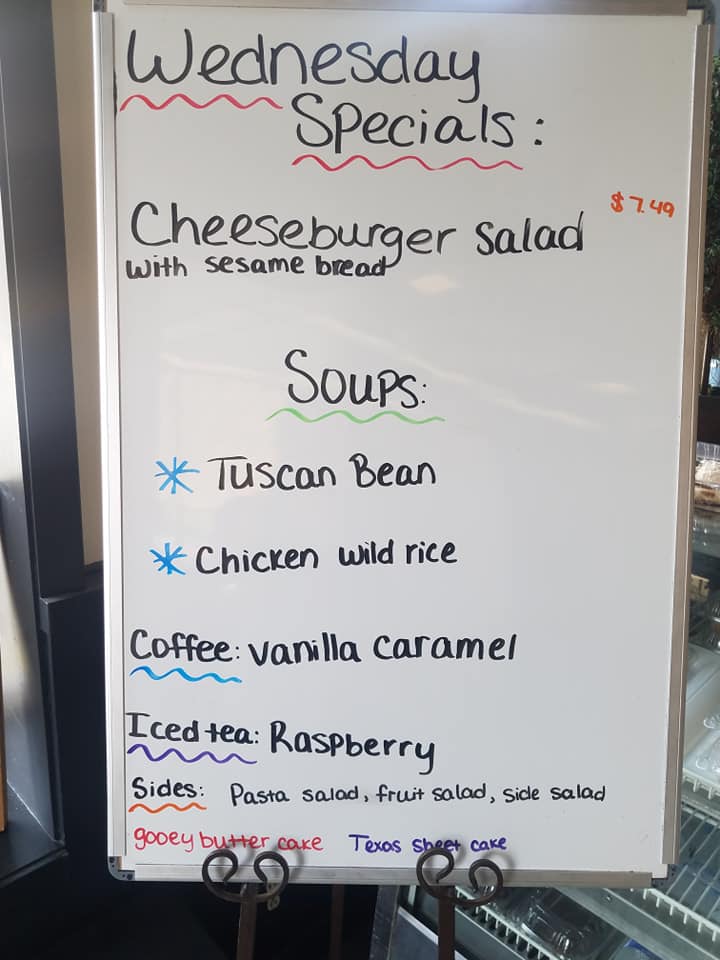 Wednesday
Specials:
$7.49
Cheeseburger Salad
with sesame bread
Soups:
* Tuscan Bean
* Chicken wild rice
Coffee: Vanilla Caramel
Iced tea: Raspberry
Sides: Pasta salad, fruit salad, side salad
gooey butter cake Texas sheet cake